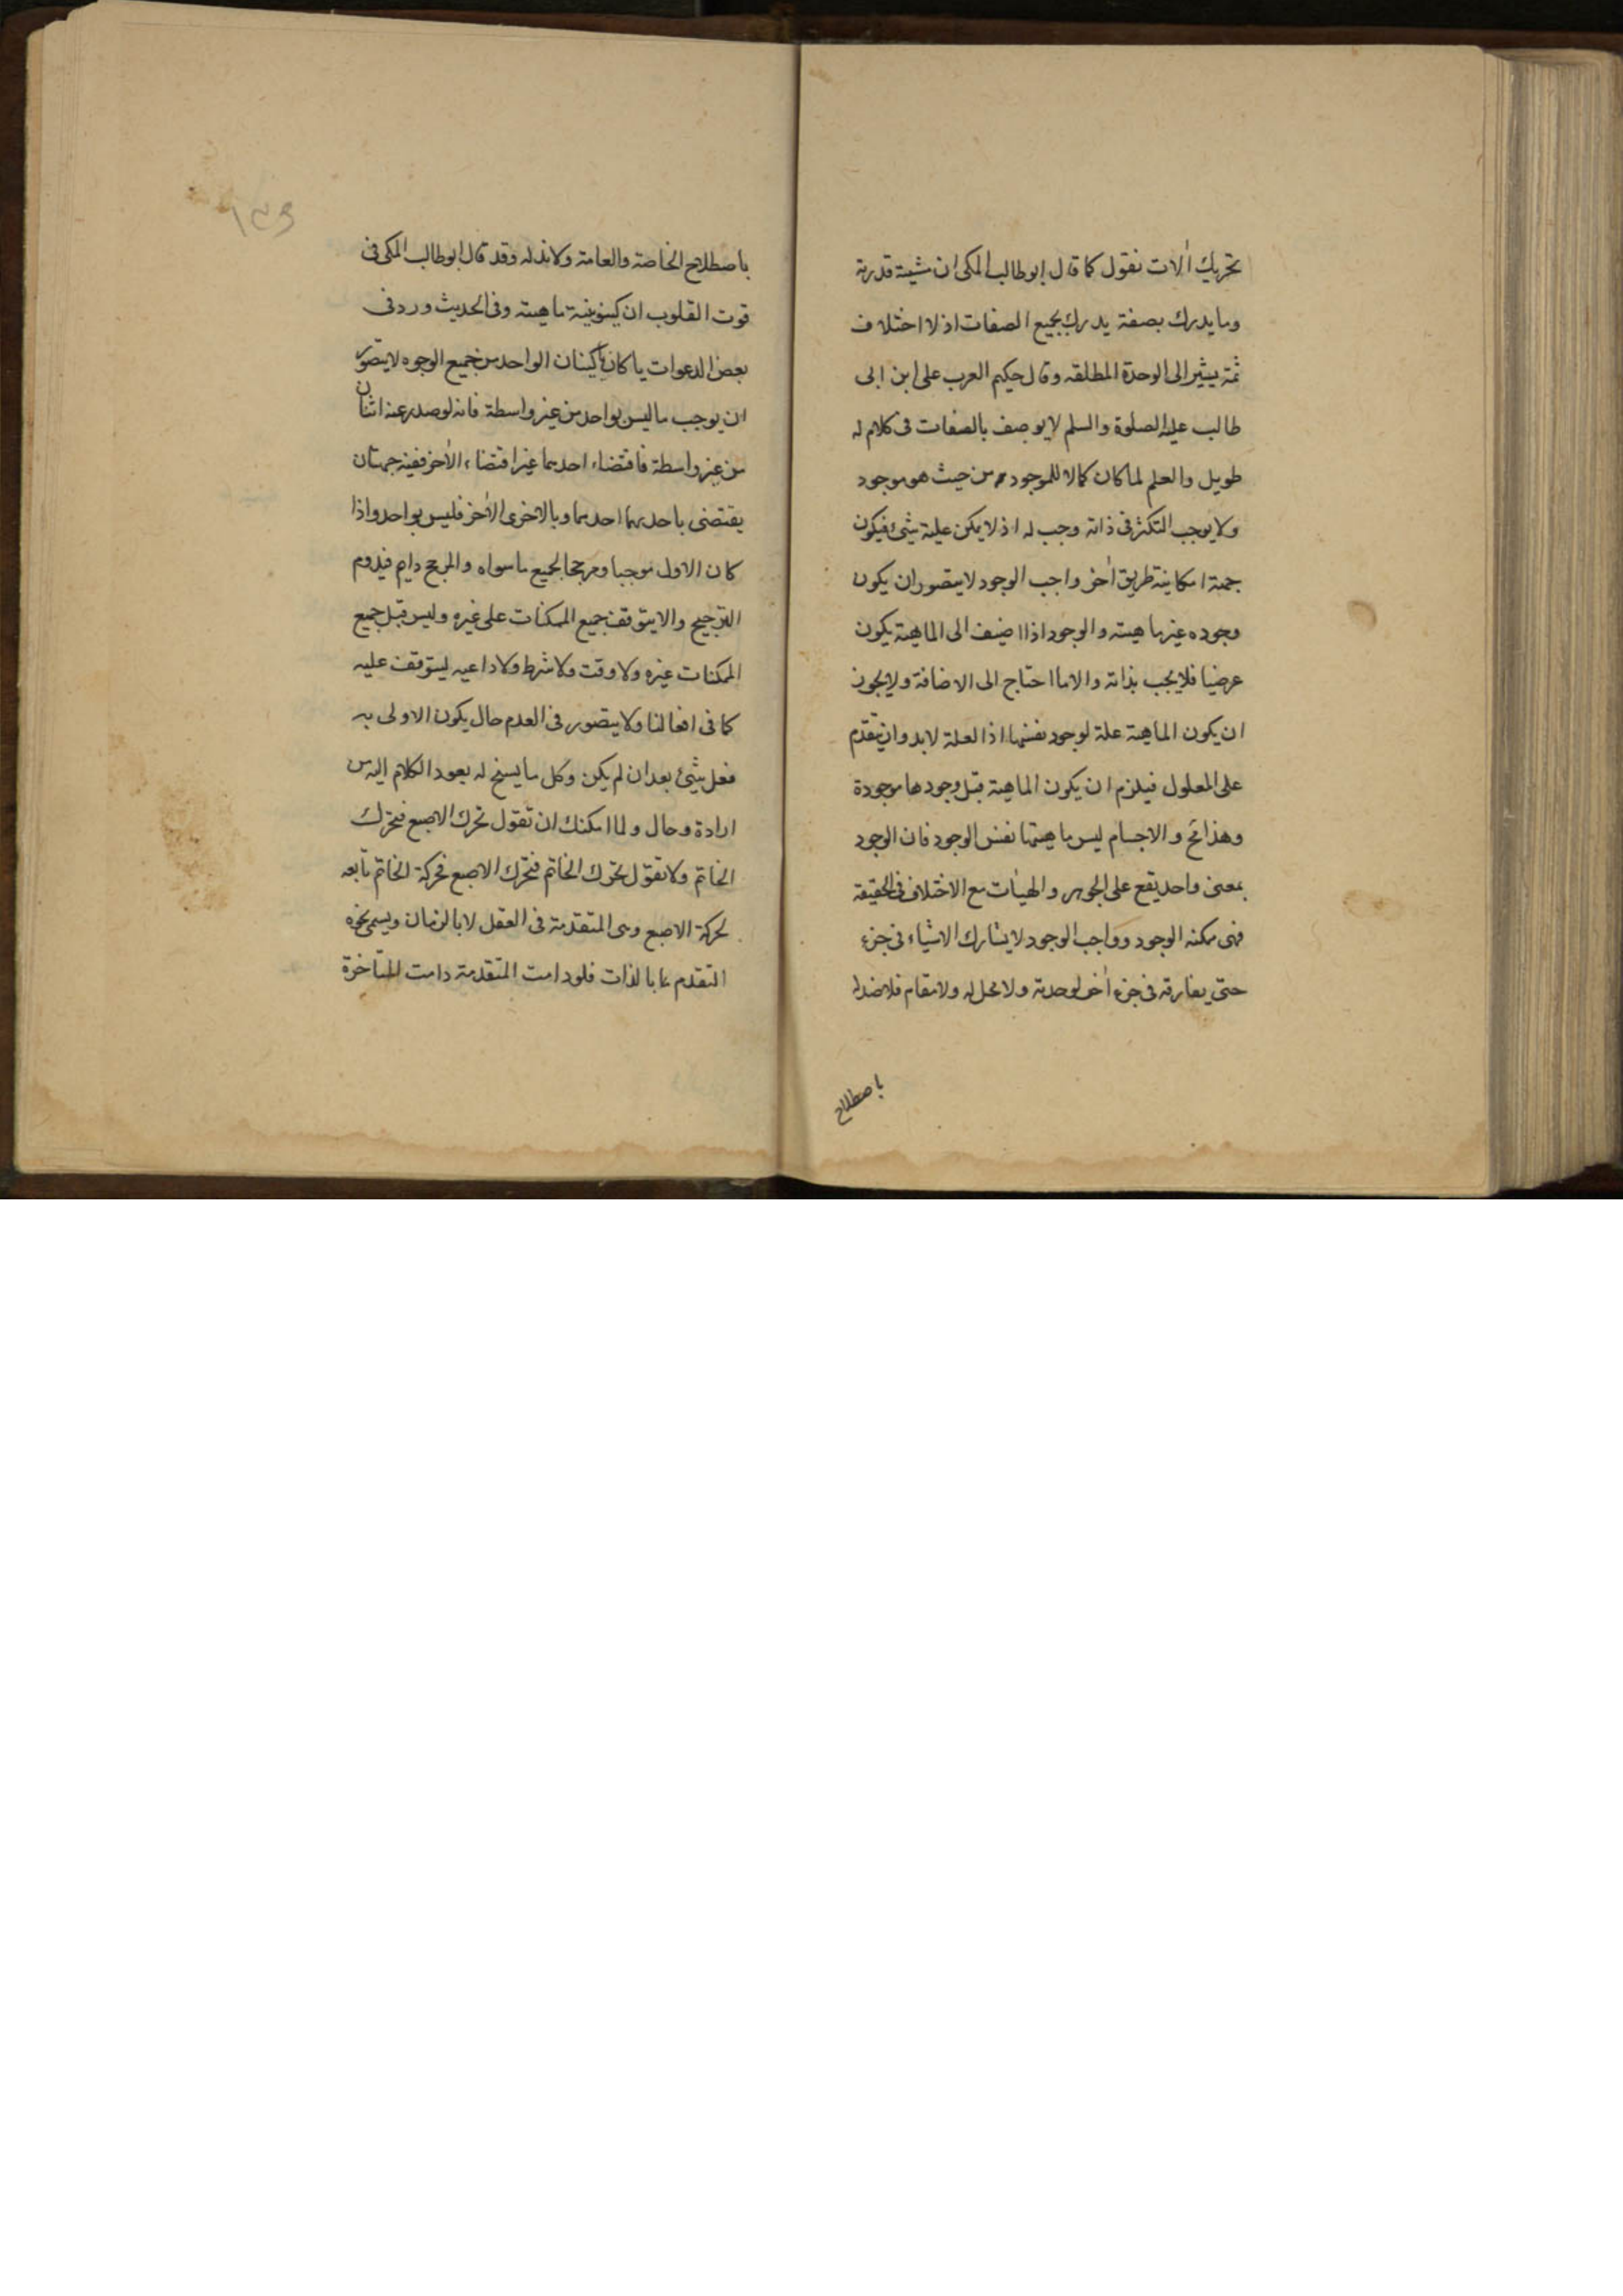 تحريك آلات نقول كما قال ابو طالب المكى ان مشيته قدرته
وما يدرك بصفة يدرك بجميع الصفات اذ لا اختلاف
ثمة يشير الى الوحدة المطلقه وقال حكيم العرب على ابن ابى
طالب عليه الصلوة والسلم لا يوصف بالصفات فى كلام له
طويل والعلم لما كان كمالا للموجود من حيث هو موجود
ولا يوجب التكثر فى ذاته وجب له اذ لا يمكن عليه شئ فيكون
جهة امكانية طريق آخر واجب الوجود لا يتصور ان يكون
وجوده غير ماهيته والوجود اذا اضيف الى الماهية يكون
عرضيا فلا يجب بذاته والا ما احتاج الى الاضافة ولا يجوز
ان يكون الماهية علة لوجود نفسها اذ العلة لابد وان تتقدم
على المعلول فيلزم ان يكون الماهية قبل وجودها موجودة
وهذا مح والاجسام ليس ماهيتها نفس الوجود فان الوجود
بمعنى واحد يقع على الجوهر والهيئات مع الاختلاف فى الحقيقة
فهى ممكنه الوجود وواجب الوجود لا يشارك الاشياء فى جزء
حتى يفارقه فى جزء آخر لوحدته ولا محل له ولا مقام فلا ضد له
باصطلاح
باصطلاح الخاصة والعامة ولا ند له وقد قال ابو طالب المكى فى
قوت القلوب ان كينونيته ماهيته وفى الحديث ورد فى
بعض الدعوات يا كان يا كينان الواحد من جميع الوجوه لا يتصور
ان يوجب ما ليس بواحد من غير واسطة فانه لو صدر عنه اثنان
من غير واسطة فاقتضاء احدهما غير اقتضاء الآخر ففيه جهتان
يقتضى باحدهما احدهما وبالاخرى الآخر فليس بواحد واذا
كان الاول موجبا ومرجحا لجميع ما سواه والمرجح دايم فيدوم
الترجيح والا يتوقف جميع الممكنات على غيره وليس قبل جميع
الممكنات غيره ولا وقت ولا شرط ولا داعيه ليتوقف عليه
كما فى افعالنا ولا يتصور فى العدم حال يكون الاولى به
فعل شئ بعد ان لم يكن وكل ما يسنح له يعود الكلام اليه من
ارادة وحال ولما امكنك ان تقول تحرك الاصبع فتحرك
الخاتم ولا تقول تحرك الخاتم فتحرك الاصبع فحركة الخاتم تابعه
لحركة الاصبع وهى المتقدمة فى العقل لا بالزمان ويسمى نحوه
التقدم بالذات فلو دامت المتقدمة دامت المتاخرة